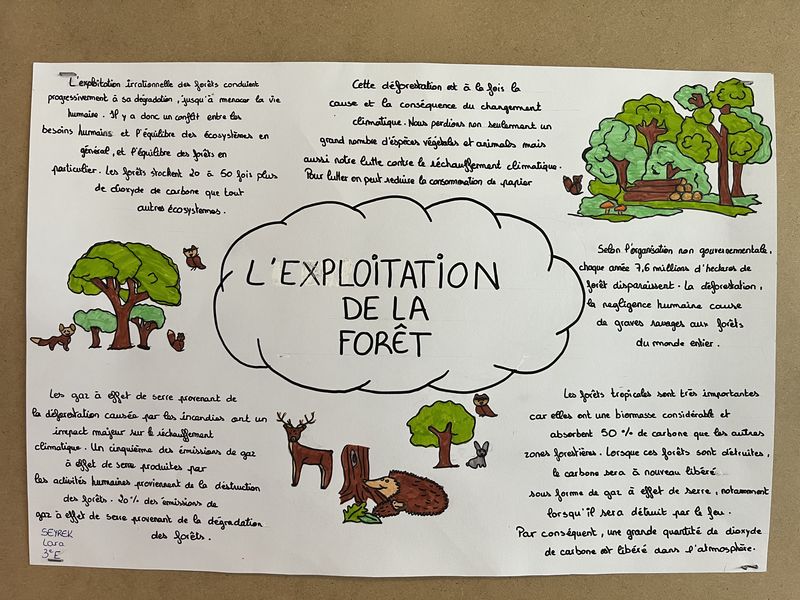 L'exploitation irrationnelle des forêts conduient
progressivement à sa dégradation, jusqu'à menacer la vie
humaine. Il y a donc un conflit entre les
besoins humains et l'équilibre des écosystèmes en
général, et l'équilibre des forêts en
particulier. Les forêts stockent 20 à 50 fois plus
de dioxyde de carbone que tout
autres écosystèmes.
Cette déforestation est à la fois la
cause et la conséquence du changement
climatique. Nous perdions non seulement un
grand nombre d'éspèces végétales et animales mais
aussi notre lutte contre le réchauffement climatique.
Pour lutter on peut reduire la consommation de papier
L'EXPLOITATION
DE LA
FORÊT
Selon l'organisation non gouvernementale,
chaque année 7,6 millions d'hectares de
forêt disparaissent. La déforestation,
la negligence humaine cause
de graves ravages aux forêts
du monde entier.
Les gaz à effet de serre provenant de
la déforestation causée par les incendies ont un
impact majeur sur le réchauffement
climatique. Un cinquième des émissions de gaz
à effet de serre produites par
les activités humaines proviennent de la déstruction
des forêts. 20% des émissions de
gaz à effet de serre provenant de la dégradation
des forêts.
Les forêts tropicales sont très importantes
car elles ont une biomasse considérable et
absorbent 50 % de carbone que les autres
zones forestières. Lorsque ces forêts sont détruites,
le carbone sera à nouveau libéré
sous forme de gaz à effet de serre, notamment
lorsqu'il sera détruit par le feu.
Par conséquent, une grande quantité de dioxyde
de carbone est libéré dans l'atmosphère.
SEYREK
Lara
3°E